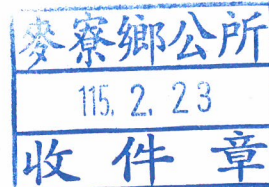 麥寮鄉公所
115. 2. 23
收件章